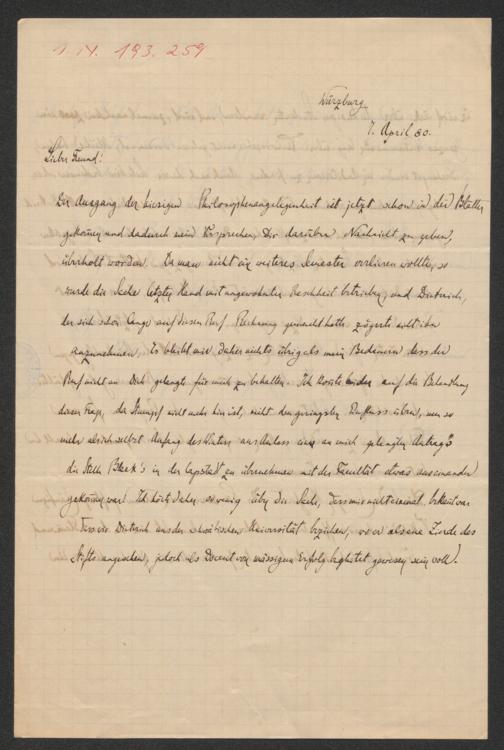 I. N. 193.259
Würzburg
7. April 80.
Lieber Freund!
Der Ausgang der hiesigen Philosophenangelegenheit ist jetzt schon in die Blätter
gekommen und dadurch mein Versprechen, Dir darüber Nachricht zu geben,
überholt worden. Da man nicht ein weiteres Semester verlieren wollte, so
wurde die Sache letzter Hand mit ungewohnter Raschheit betrieben, und
der sich schon lange auf diesen Ruf Rechnung gemacht hatte zögerte nicht ihn
anzunehmen. Es bleibt mir daher nichts übrig als mein Bedauern dass der
Ruf nicht an Dich gelangte für mich zu behalten. Ich konnte leider auf die Behandlung
dieser Frage, da Stumpf nicht mehr hier ist, nicht den geringsten Einfluss üben, um so
mehr als ich selbst Anfang des Winters aus Anlass eines an mich gelangten Antrags
die Stelle in der Capstadt zu übernehmen mit der Facultät etwas auseinander
gekommen war. Ich hörte daher so wenig über die Sache, dass mir nicht einmal bekannt war
dass wir aus der schwäbischen Universität beziehen, wo er als eine Zierde des
Stifts angesehen, jedoch als Docent von mässigem Erfolg begleitet gewesen sein soll.